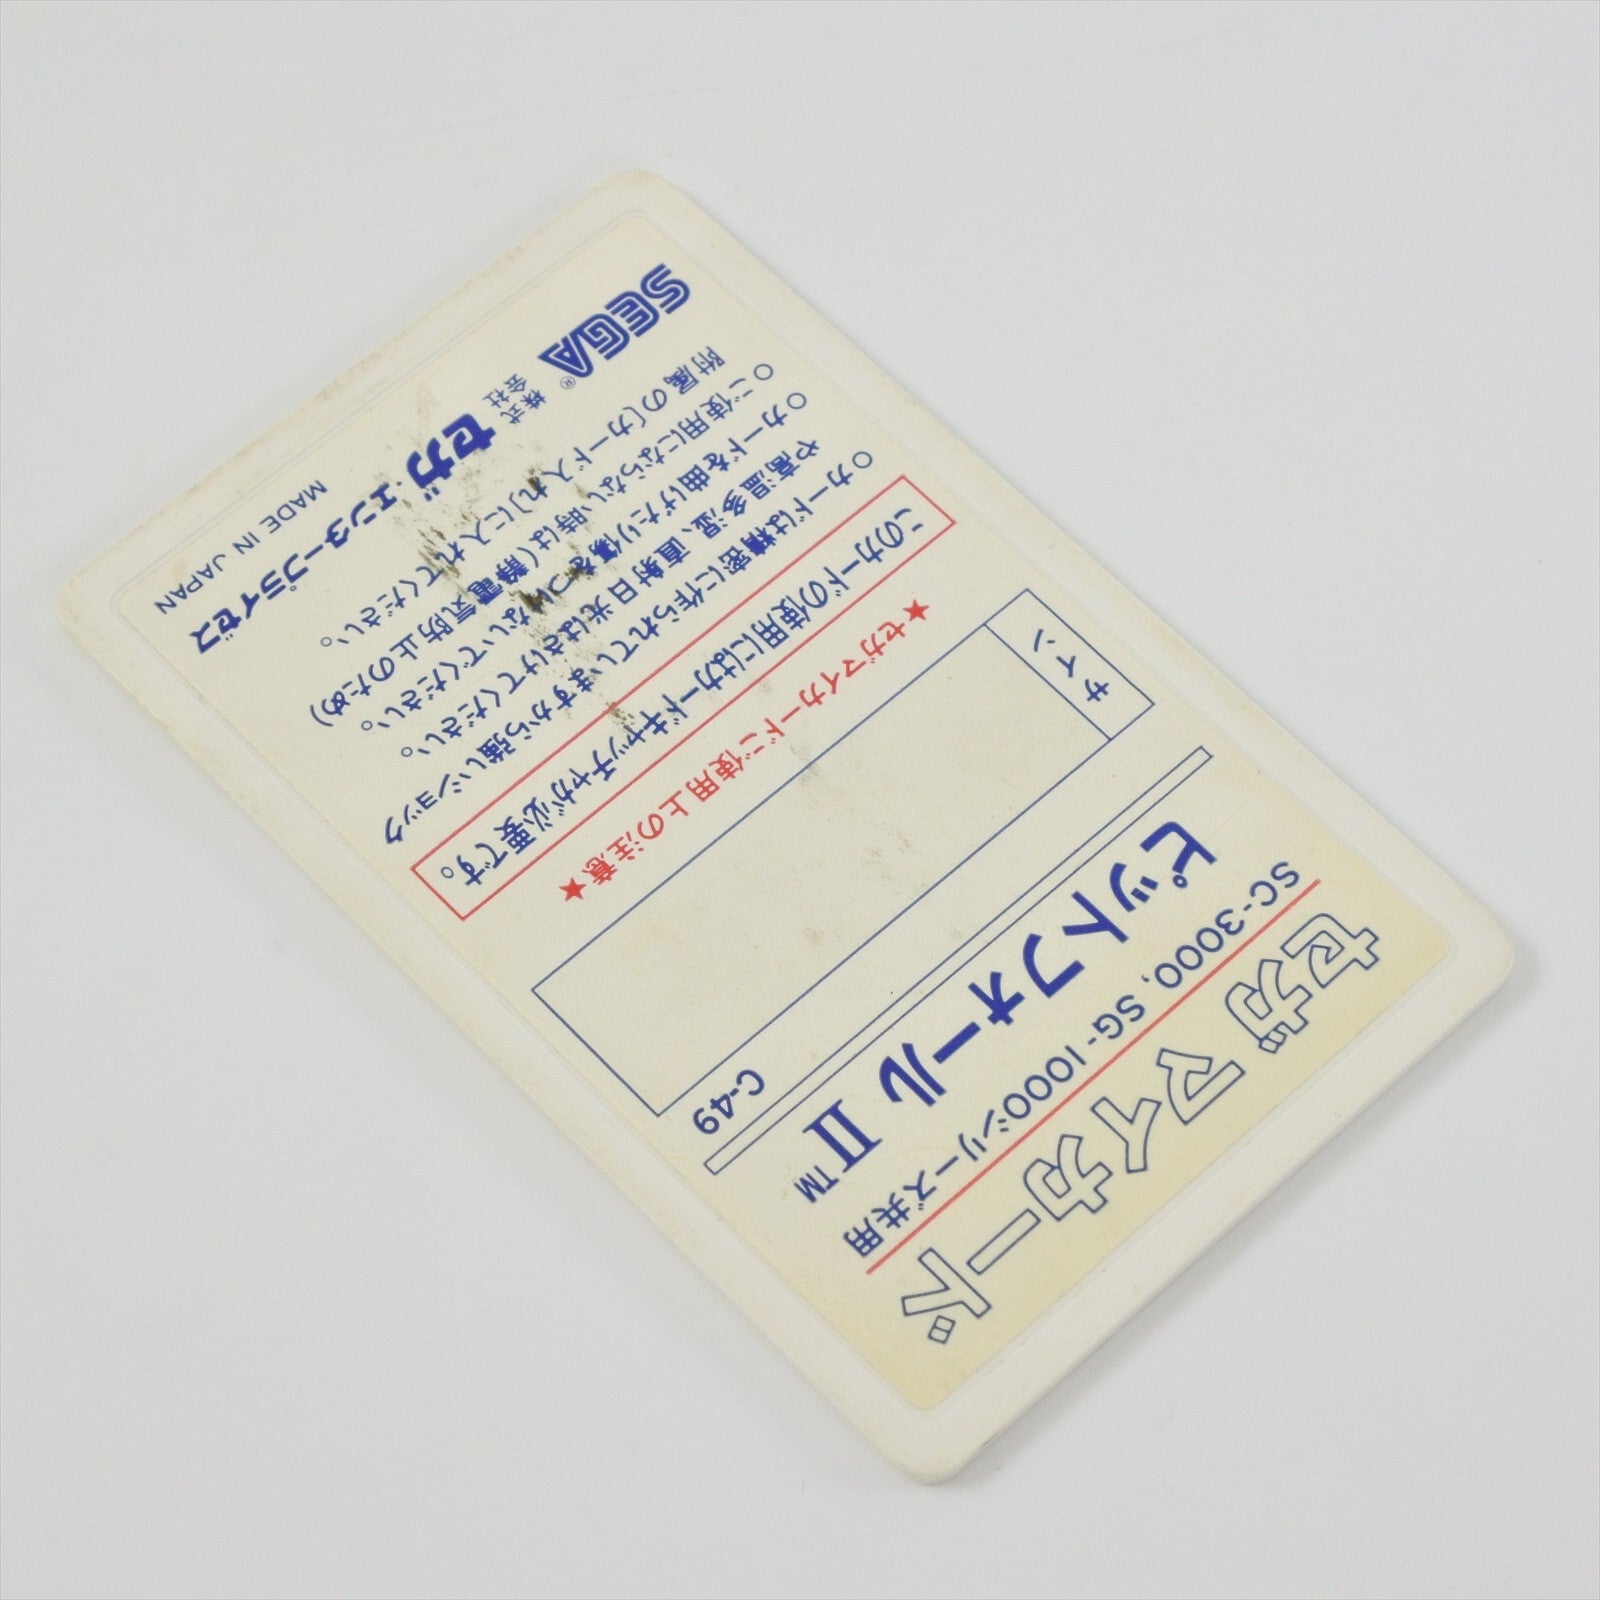 セガ マイカード
SC-3000, SG-1000シリーズ共用
ピットフォール II™
C-49
サイン
★セガマイカードご使用上の注意★
このカードの使用にはカードキャッチャが必要です。
○カードは精密に作られていますから強いショック
や高温多湿、直射日光はさけてください。
○カードを曲げたり傷をつけないでください。
○ご使用にならない時は(静電気防止のため)
附属の〔カード入れ〕に入れてください。
SEGA® 株式会社 セガ・エンタープライゼス
MADE IN JAPAN